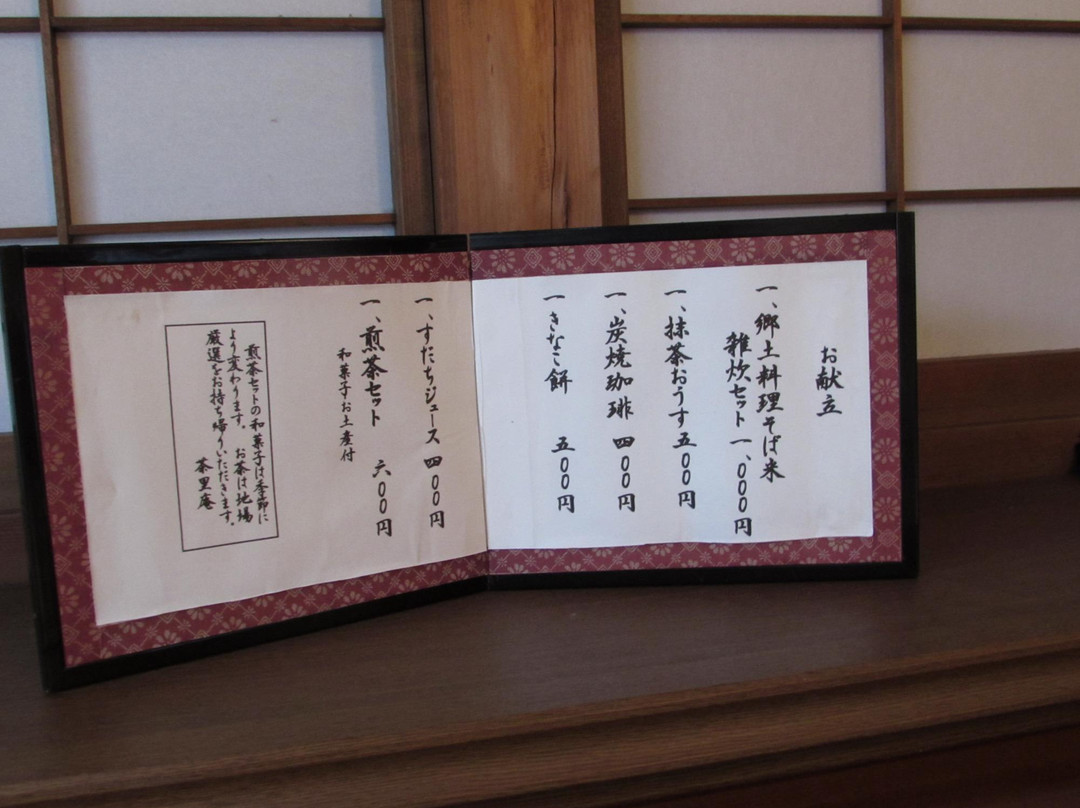 お献立
一、郷土料理そば米
雑炊セット 一、000円
一、抹茶おうす 五00円
一、炭焼珈琲 四00円
一 きなこ餅 五00円
一、すだちジュース 四00円
一、煎茶セット 六00円
和菓子お土産付
煎茶セットの和菓子は季節に
より変わります。 お茶は地場
厳選をお持ち帰りいただきます。
茶里庵